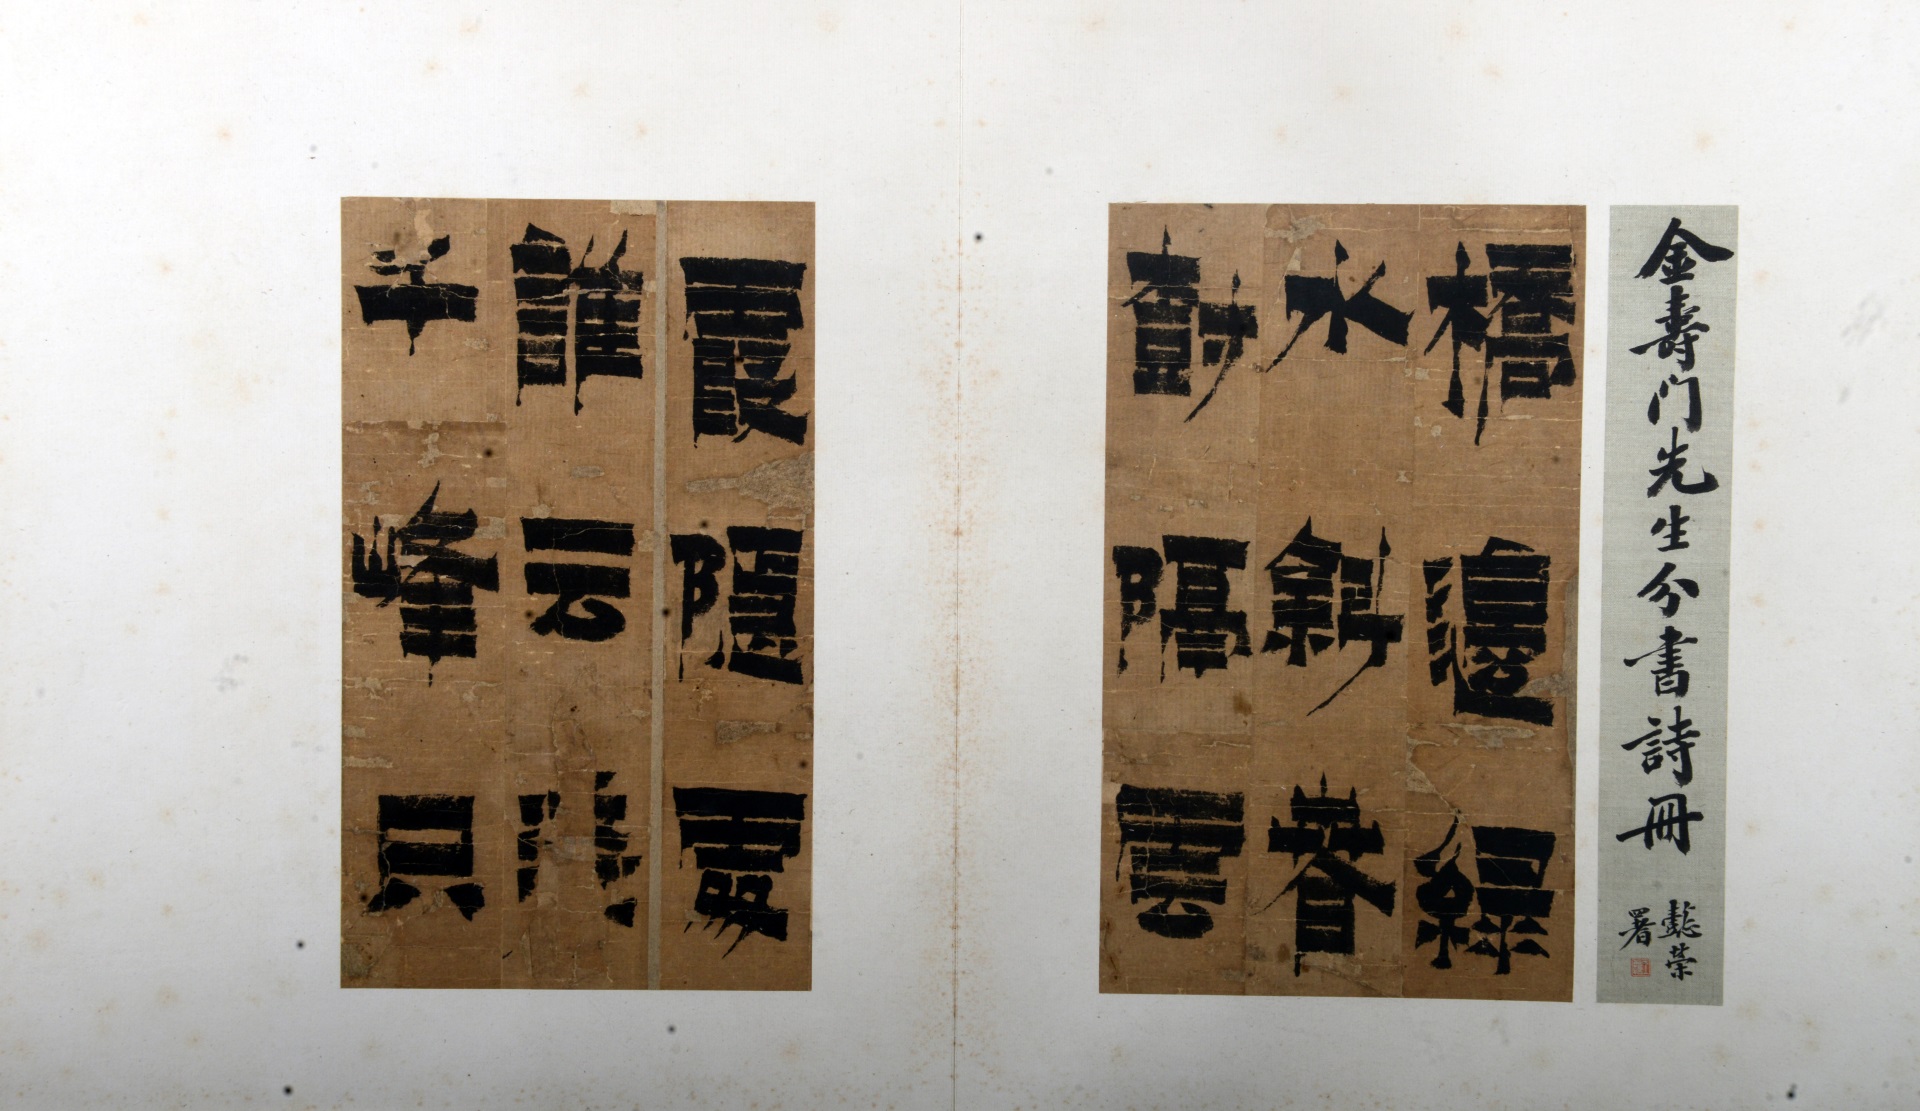 金壽門先生分書詩冊
懿榮
署
橋邊綠
水斜春
樹隔雲
霞隱處
誰云淺
千峰只